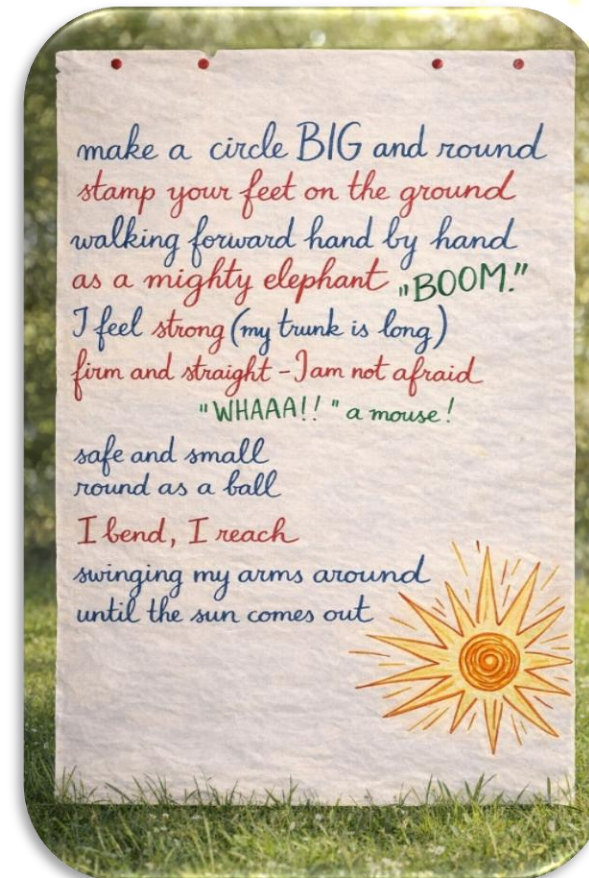 make a circle BIG and round
stamp your feet on the ground
walking forward hand by hand
as a mighty elephant „BOOM."
I feel strong (my trunk is long)
firm and straight - I am not afraid
"WHAAA!!" a mouse!
safe and small
round as a ball
I bend, I reach
swinging my arms around
until the sun comes out